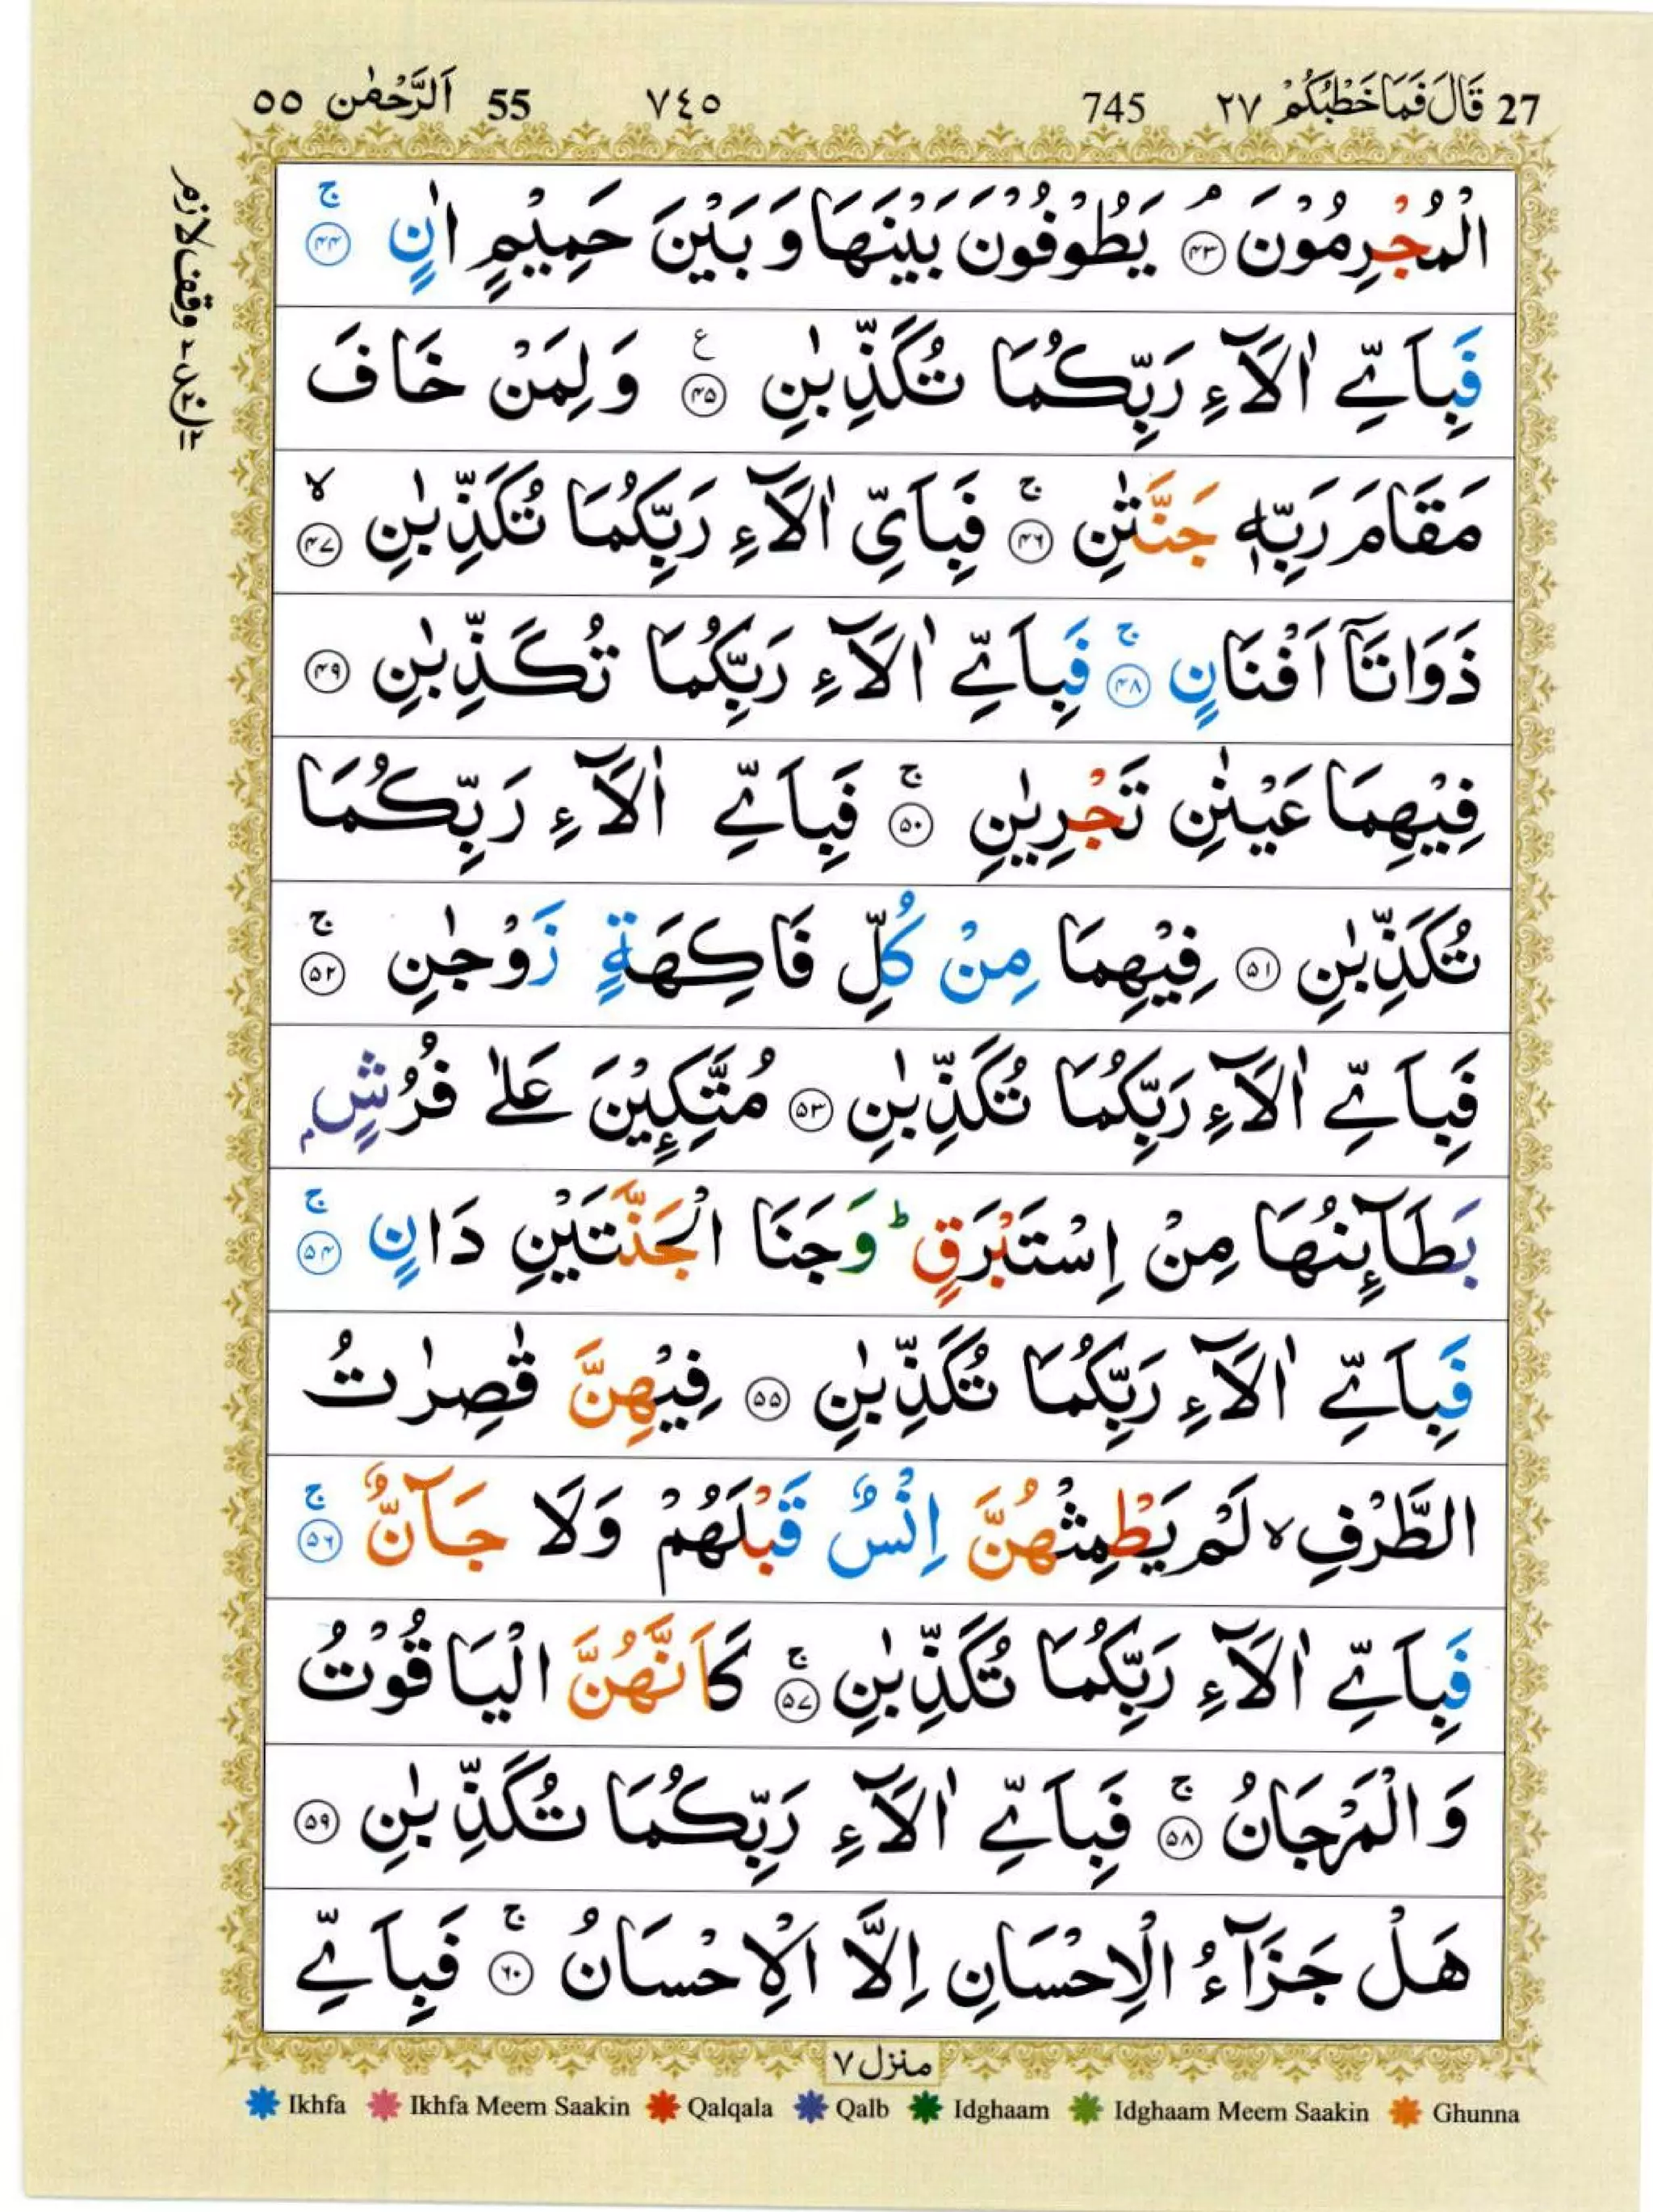 27 قَالَ فَمَا خَطْبُكُمْ ٢٧ 745 ٧٤٥ 55 اَلرَّحْمٰن ٥٥
الْمُجْرِمُوْنَ ۘ ﴿۴۳﴾ يَطُوْفُوْنَ بَيْنَهَا وَ بَيْنَ حَمِيْمٍ اٰنٍ ۚ ﴿۴۴﴾
فَبِاَيِّ اٰلَآءِ رَبِّكُمَا تُكَذِّبٰنِ ﴿۴۵﴾ ع وَ لِمَنْ خَافَ
مَقَامَ رَبِّهٖ جَنَّتٰنِ ۚ ﴿۴۶﴾ فَبِاَيِّ اٰلَآءِ رَبِّكُمَا تُكَذِّبٰنِ ۙ ﴿۴۷﴾
ذَوَاتَاۤ اَفْنَانٍ ۚ ﴿۴۸﴾ فَبِاَيِّ اٰلَآءِ رَبِّكُمَا تُكَذِّبٰنِ ﴿۴۹﴾
فِيْهِمَا عَيْنٰنِ تَجْرِيٰنِ ۚ ﴿۵۰﴾ فَبِاَيِّ اٰلَآءِ رَبِّكُمَا
تُكَذِّبٰنِ ﴿۵۱﴾ فِيْهِمَا مِنْ كُلِّ فَاكِهَةٍ زَوْجٰنِ ۚ ﴿۵۲﴾
فَبِاَيِّ اٰلَآءِ رَبِّكُمَا تُكَذِّبٰنِ ﴿۵۳﴾ مُتَّكِـِٕيْنَ عَلٰى فُرُشٍۭ
بَطَآئِنُهَا مِنْ اِسْتَبْرَقٍ ؕ وَ جَنَا الْجَنَّتَيْنِ دَانٍ ۚ ﴿۵۴﴾
فَبِاَيِّ اٰلَآءِ رَبِّكُمَا تُكَذِّبٰنِ ﴿۵۵﴾ فِيْهِنَّ قٰصِرٰتُ
الطَّرْفِ ۙ لَمْ يَطْمِثْهُنَّ اِنْسٌ قَبْلَهُمْ وَ لَا جَآنٌّ ۚ ﴿۵۶﴾
فَبِاَيِّ اٰلَآءِ رَبِّكُمَا تُكَذِّبٰنِ ۚ ﴿۵۷﴾ كَاَنَّهُنَّ الْيَاقُوْتُ
وَ الْمَرْجَانُ ۚ ﴿۵۸﴾ فَبِاَيِّ اٰلَآءِ رَبِّكُمَا تُكَذِّبٰنِ ﴿۵۹﴾
هَلْ جَزَآءُ الْاِحْسَانِ اِلَّا الْاِحْسَانُ ۚ ﴿۶۰﴾ فَبِاَيِّ
منزل ٧
Ikhfa Ikhfa Meem Saakin Qalqala Qalb Idghaam Idghaam Meem Saakin Ghunna
وقف لازم